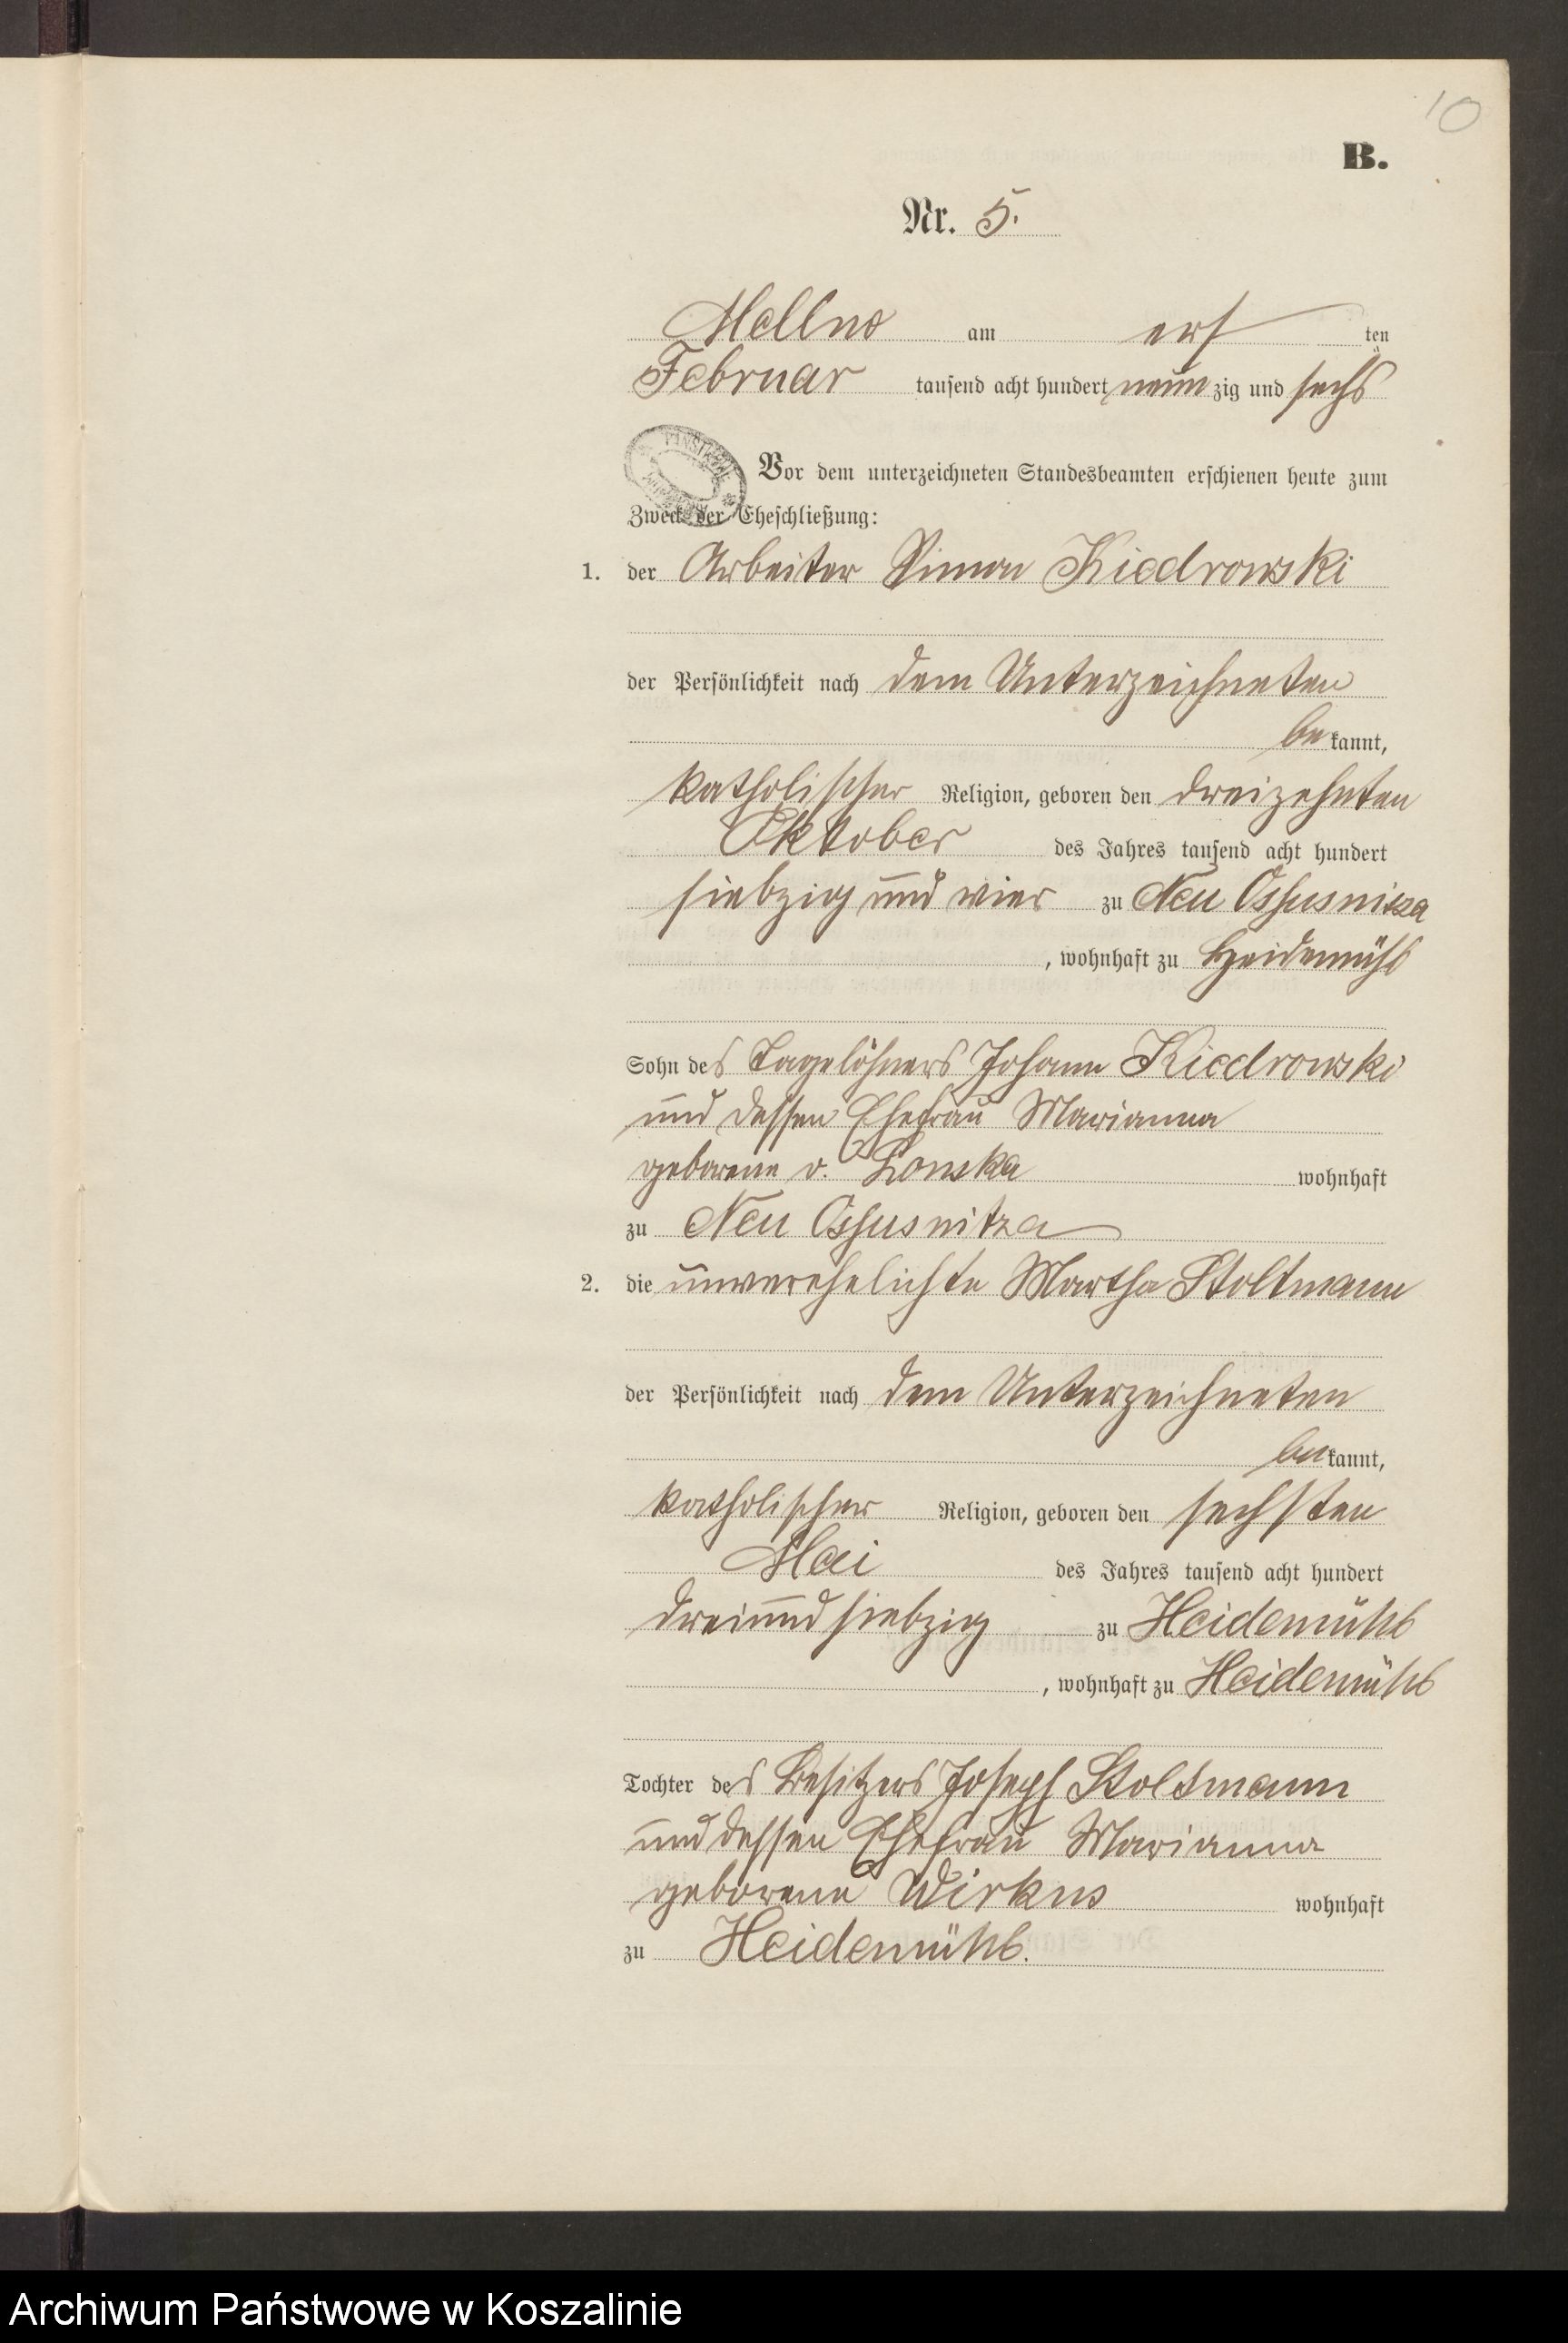 10
B.
Nr. 5.
Mellno am ers ten
Februar tausend acht hundert neun zig und sechs
Vor dem unterzeichneten Standesbeamten erschienen heute zum
Zweck der Eheschließung:
1. der Arbeiter Simon Kiedrowski
der Persönlichkeit nach dem Unterzeichneten
be kannt,
katholischer Religion, geboren den dreizehnten
Oktober des Jahres tausend acht hundert
siebzig und vier zu Neu Ossusnitza
, wohnhaft zu Heidemühl
Sohn des Tagelöhners Johann Kiedrowski
und dessen Ehefrau Marianna
geborene v. Lonska wohnhaft
zu Neu Ossusnitza
2. die unverehelichte Martha Stoltmann
der Persönlichkeit nach dem Unterzeichneten
be kannt,
katholischer Religion, geboren den sechsten
Mai des Jahres tausend acht hundert
dreiundsiebzig zu Heidemühl
, wohnhaft zu Heidemühl
Tochter des Besitzers Joseph Stoltmann
und dessen Ehefrau Marianna
geborene Wirkus wohnhaft
zu Heidemühl.
Archiwum Państwowe w Koszalinie